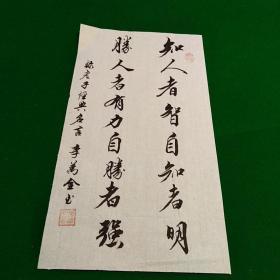 知人者智自知者明
勝人者有力自勝者强
録老子經典名言 李萬金书